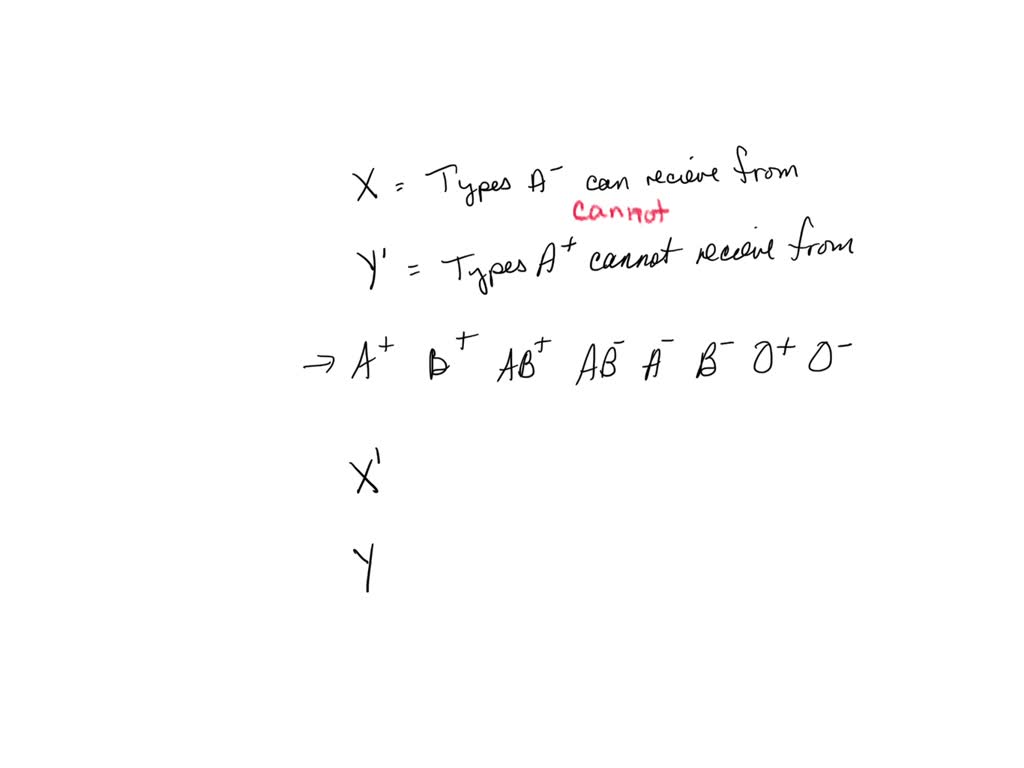 X = Types A⁻ can recieve from
cannot
Y' = Types A⁺ cannot recieve from
→ A⁺ B⁺ AB⁺ AB⁻ A⁻ B⁻ O⁺ O⁻
X'
Y